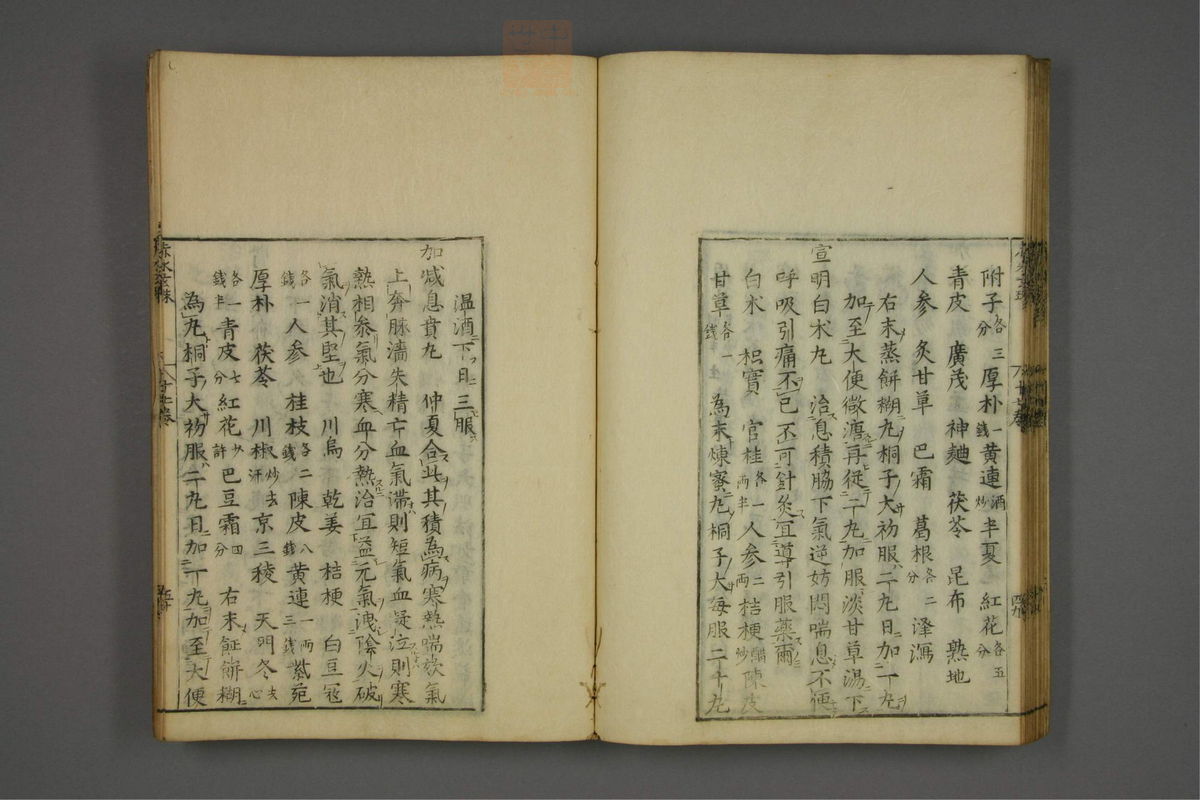 附子各三分厚朴一錢黄連酒炒半夏 紅花各五分
青皮 廣茂 神麯 茯苓 昆布 熟地
人参 炙甘草 巴霜 葛根各二分 澤瀉
右末蒸餅糊九桐子大初服二九日加一九
加至大便微溏再從二九加服淡甘草湯下
宣明白朮九 治息積脇下氣逆妨悶喘息不便
呼吸引痛不已不可針灸宜導引服薬爾
白朮 枳實 官桂各一兩半人参二兩桔梗醋炒陳皮
甘草各一錢 為末煉蜜九桐子大每服二十九
温酒下日三服
加减息賁九 仲夏合此其積為病寒熱喘咳氣
上奔脉濇失精亡血氣滞則短氣血凝泣則寒
熱相参氣分寒血分熱治宜益元氣洩陰火破
氣消其堅也 川烏 乾姜 桔梗 白豆冦
各一錢人参 桂枝各二錢陳皮八錢黄連一兩三錢紫苑
厚朴 茯苓 川椒炒去汗京三稜 天門冬去心
各一錢半青皮七分紅花少許巴豆霜四分 右末蒸餅糊
為九桐子大初服二九日加一九加至大便
赤水玄珠